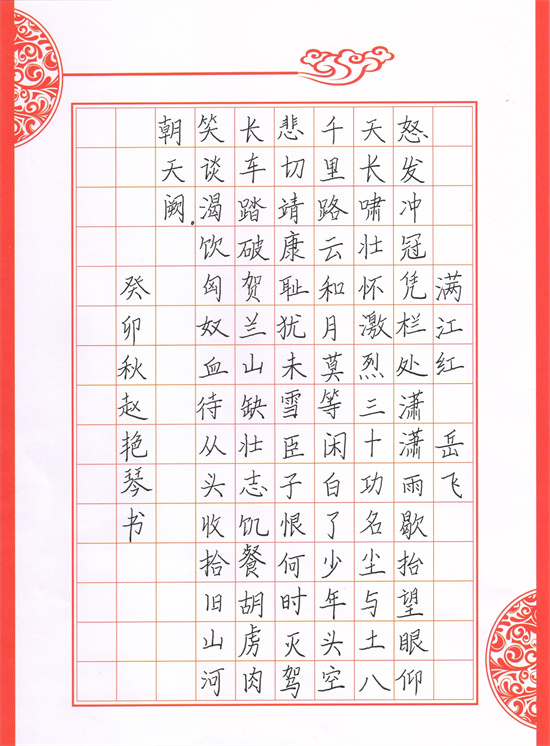 满江红 岳飞
怒发冲冠凭栏处潇潇雨歇抬望眼仰
天长啸壮怀激烈三十功名尘与土八
千里路云和月莫等闲白了少年头空
悲切靖康耻犹未雪臣子恨何时灭驾
长车踏破贺兰山缺壮志饥餐胡虏肉
笑谈渴饮匈奴血待从头收拾旧山河
朝天阙。
癸卯秋赵艳琴书